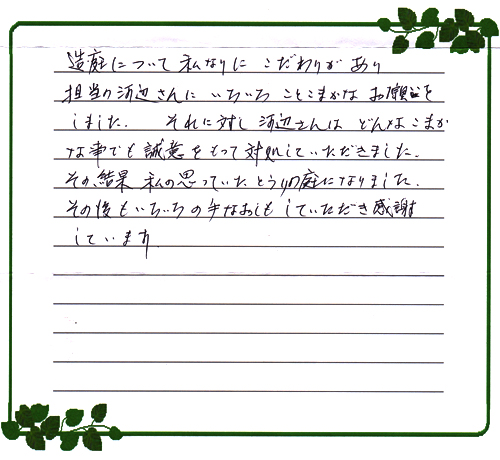 造庭について私なりに こだわりがあり
担当の河辺さんに いちいち ことこまかな お願いを
しました. それに対し 河辺さんは どんなこまか
な事でも 誠意をもって対処していただきました.
その結果 私の思っていたとうりの庭になりました.
その後もいちいちの手なおしも していただき感謝
しています.